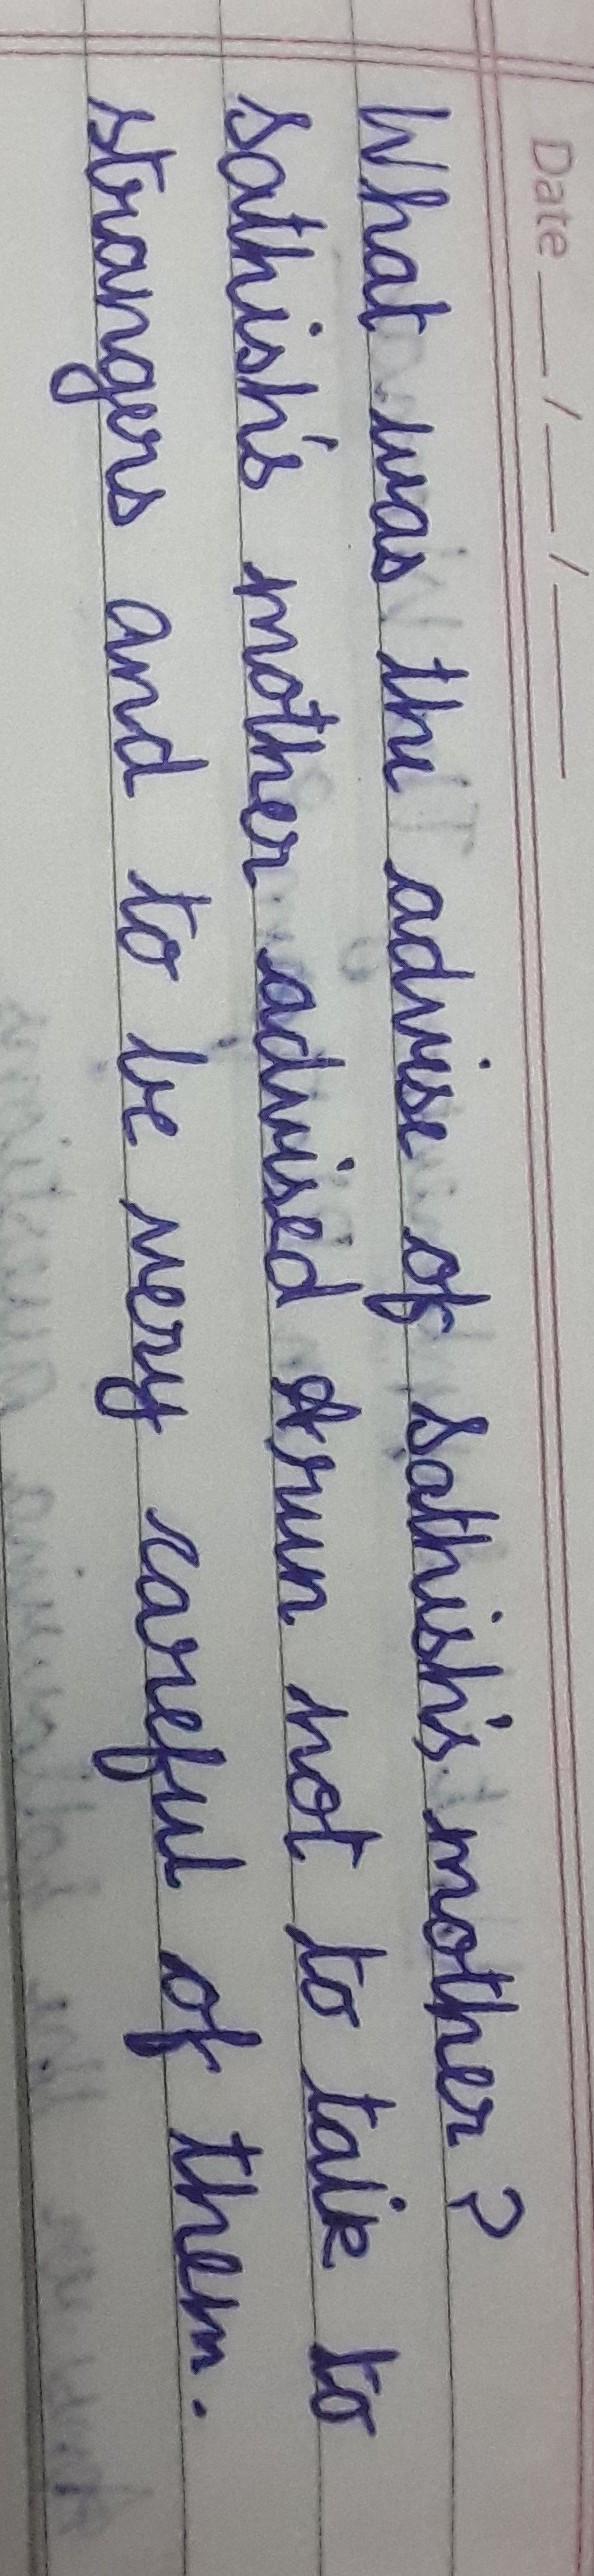 Date __/__/____
What was the advise of Sathish's mother?
Sathish's mother advised Arun not to talk to
strangers and to be very careful of them.